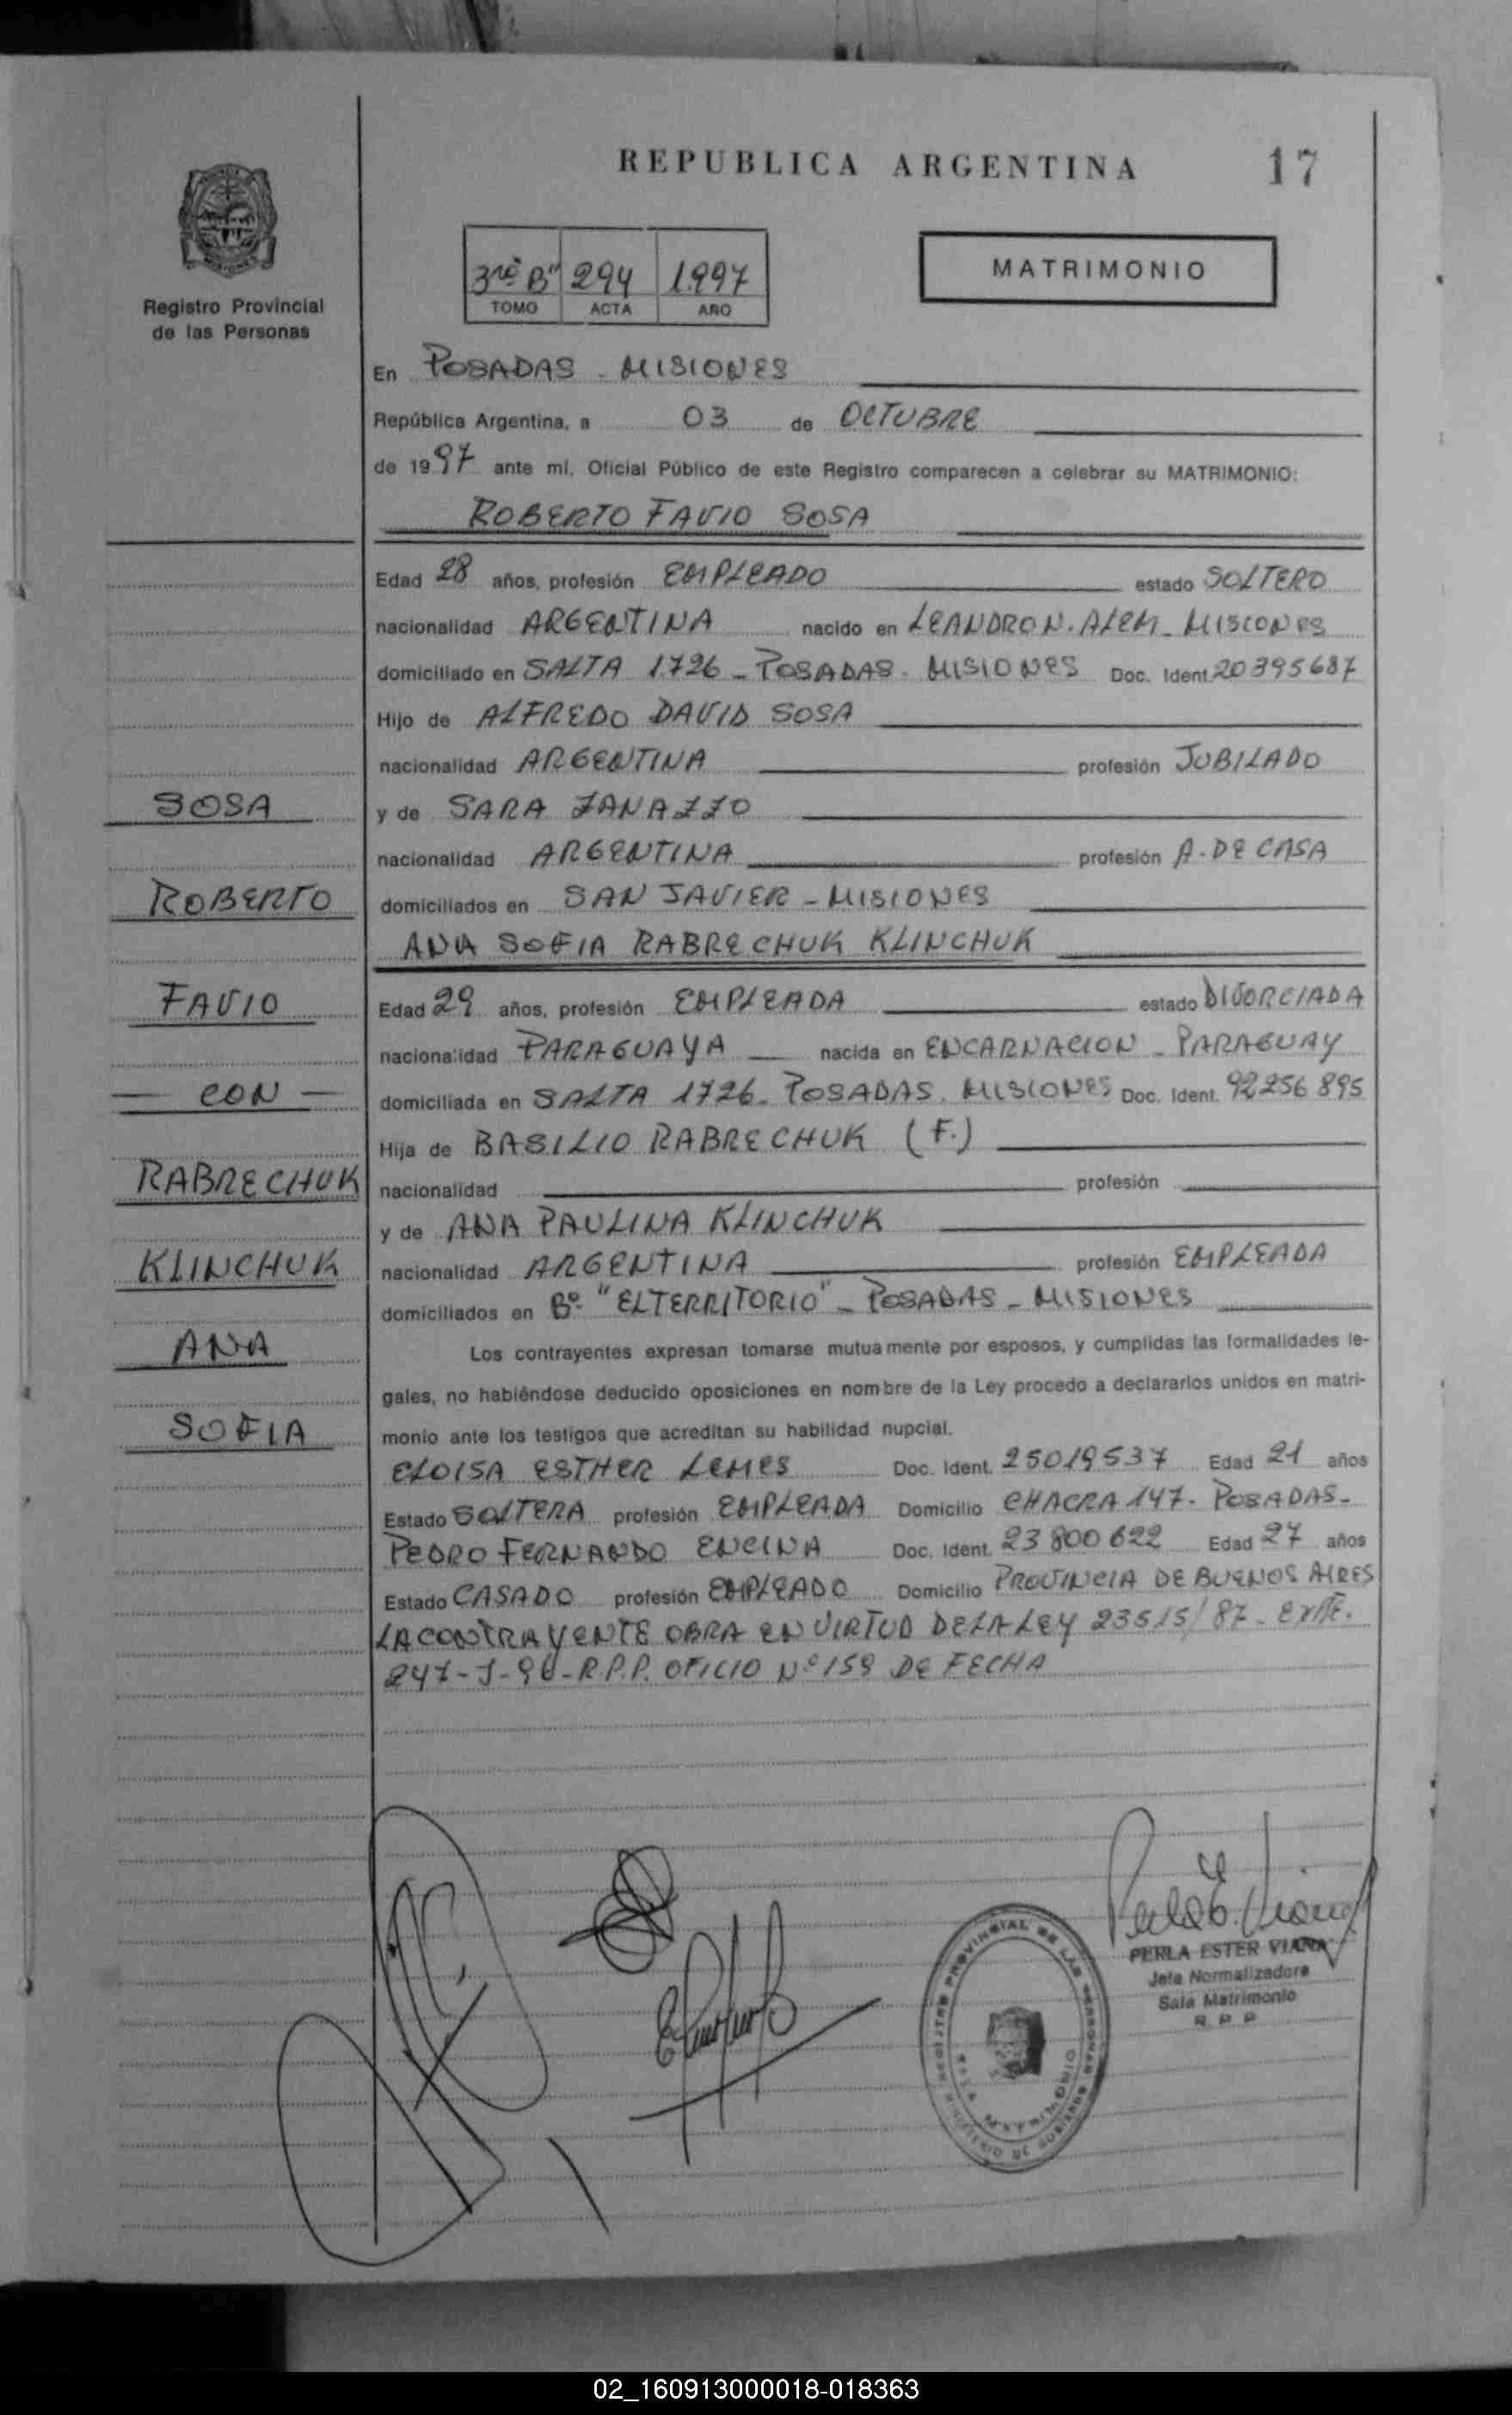 REPUBLICA ARGENTINA 17
Registro Provincial
de las Personas
3ro "B" 294 1.997
TOMO ACTA AÑO
MATRIMONIO
En POSADAS - MISIONES
República Argentina, a 03 de OCTUBRE
de 1997 ante mí, Oficial Público de este Registro comparecen a celebrar su MATRIMONIO:
ROBERTO FAVIO SOSA
Edad 28 años, profesión EMPLEADO estado SOLTERO
nacionalidad ARGENTINA nacido en LEANDRO N. ALEM - MISIONES
domiciliado en SALTA 1.726 - POSADAS - MISIONES Doc. Ident. 20395687
Hijo de ALFREDO DAVID SOSA
nacionalidad ARGENTINA profesión JUBILADO
SOSA
y de SARA ZANAZZO
nacionalidad ARGENTINA profesión A. DE CASA
ROBERTO
domiciliados en SAN JAVIER - MISIONES
ANA SOFIA RABRECHUK KLINCHUK
FAVIO
Edad 29 años, profesión EMPLEADA estado DIVORCIADA
nacionalidad PARAGUAYA nacida en ENCARNACION - PARAGUAY
- CON -
domiciliada en SALTA 1726 - POSADAS. MISIONES Doc. Ident. 92256895
Hija de BASILIO RABRECHUK (F.)
RABRECHUK
nacionalidad profesión
y de ANA PAULINA KLINCHUK
KLINCHUK
nacionalidad ARGENTINA profesión EMPLEADA
domiciliados en Bº "EL TERRITORIO" - POSADAS - MISIONES
ANA
Los contrayentes expresan tomarse mutuamente por esposos, y cumplidas las formalidades le-
gales, no habiéndose deducido oposiciones en nombre de la Ley procedo a declararlos unidos en matri-
SOFIA
monio ante los testigos que acreditan su habilidad nupcial.
ELOISA ESTHER LEMES Doc. Ident. 25019537 Edad 21 años
Estado SOLTERA profesión EMPLEADA Domicilio CHACRA 147. POSADAS-
PEDRO FERNANDO ENCINA Doc. Ident. 23800622 Edad 27 años
Estado CASADO profesión EMPLEADO Domicilio PROVINCIA DE BUENOS AIRES
LA CONTRAYENTE OBRA EN VIRTUD DE LA LEY 23515/87 - EXPTE.
R.P.P. OFICIO Nº 159 DE FECHA
PERLA ESTER VIANA
Jefa Normalizadora
Sala Matrimonio
R. P. P.
REGISTRO PROVINCIAL DE LAS PERSONAS
SALA MATRIMONIO
MINISTERIO DE GOBIERNO
02_160913000018-018363